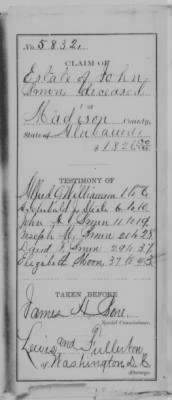 No. 5832.
CLAIM OF
Estate of John
Irvin deceased
of
Madison County,
State of Alabama
$1826
TESTIMONY OF
Alfred C Williamson 1 to 6
Archibald J. 6 to 10
John A. Irvin 11 to 19
Joseph M. 21 & 28
David F. Irvin 29 & 37
Elizabeth Moon 37 to 43
TAKEN BEFORE
James H. Bone
Special Commissioner.
Lewis and Fullerton
of Washington D.C.
Attorneys.